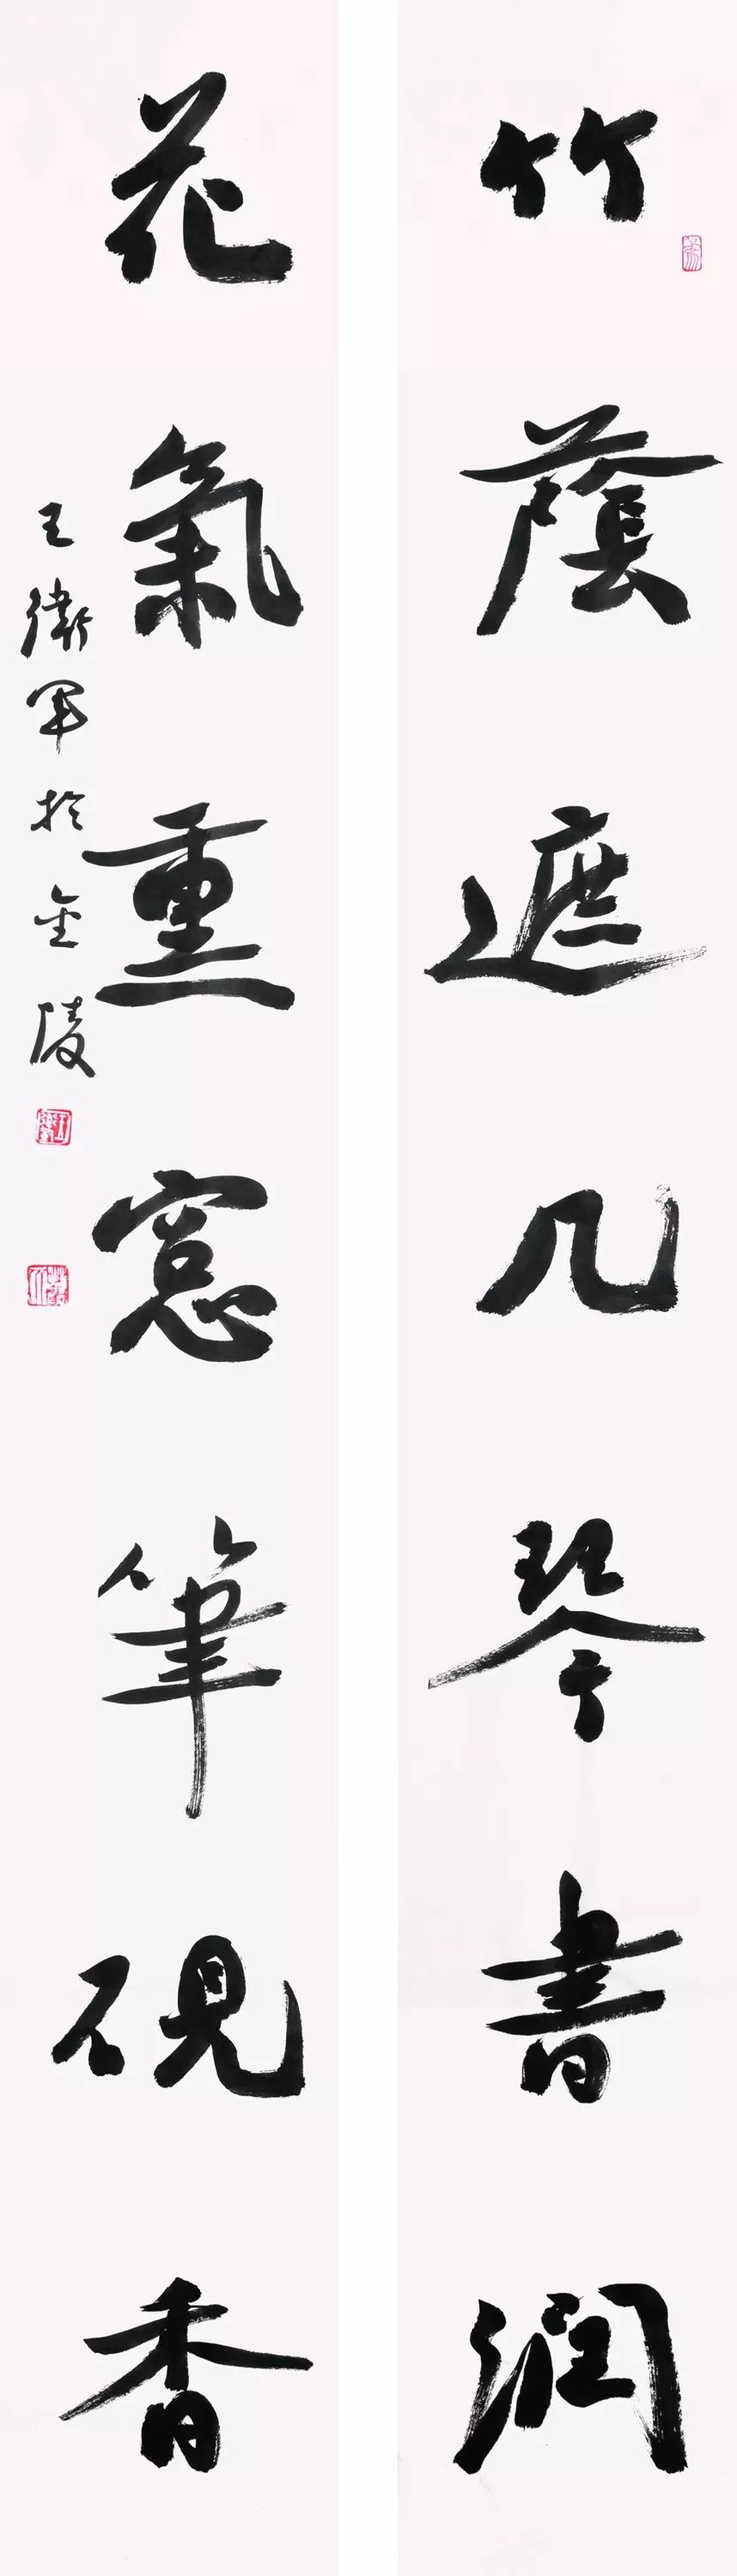 竹蔭遮几琴書潤
花氣熏窓筆硯香
王衛軍於金陵